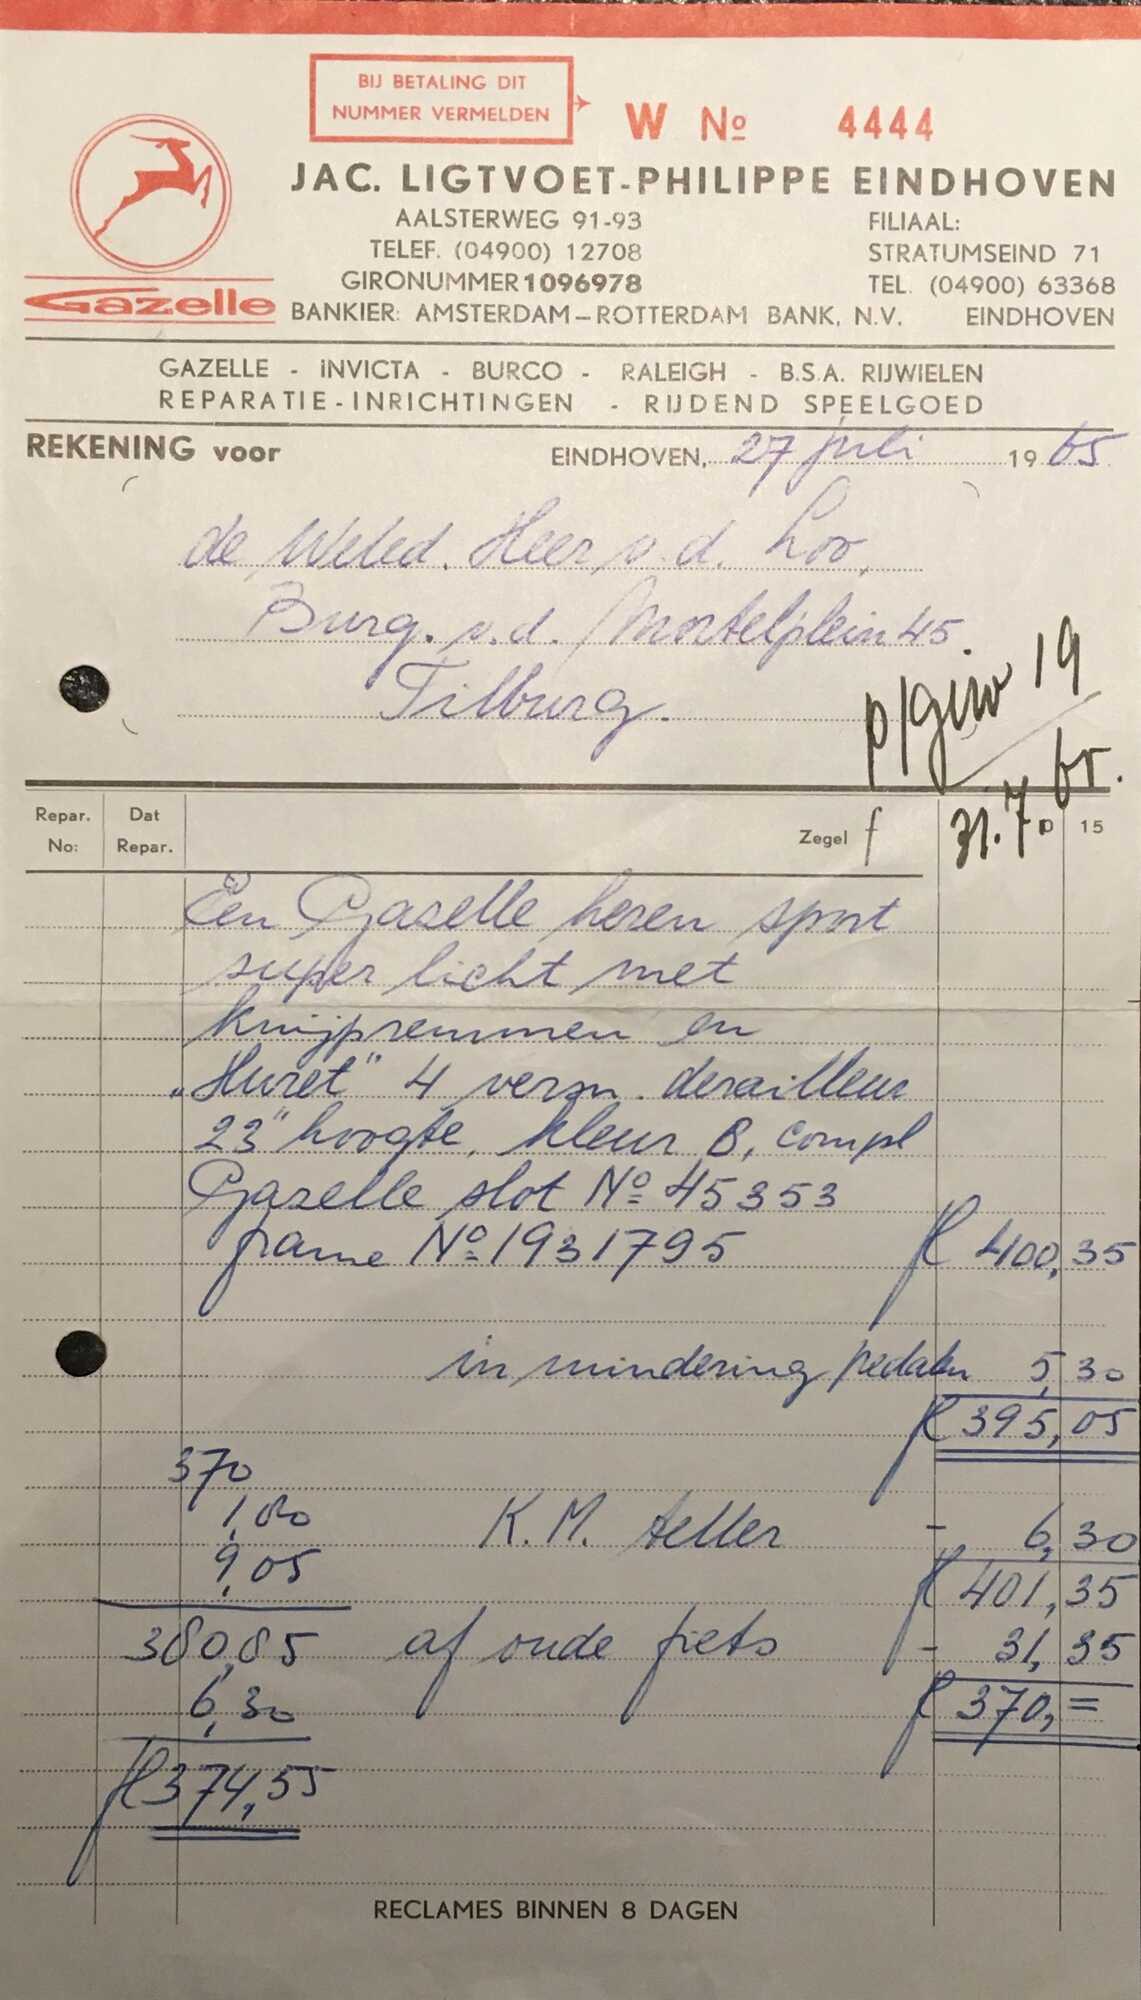 BIJ BETALING DIT
NUMMER VERMELDEN
W No 4444
JAC. LIGTVOET-PHILIPPE EINDHOVEN
AALSTERWEG 91-93
TELEF. (04900) 12708
GIRONUMMER 1096978
FILIAAL:
STRATUMSEIND 71
TEL. (04900) 63368
BANKIER: AMSTERDAM-ROTTERDAM BANK, N.V. EINDHOVEN
Gazelle
GAZELLE - INVICTA - BURCO - RALEIGH - B.S.A. RIJWIELEN
REPARATIE-INRICHTINGEN - RIJDEND SPEELGOED
REKENING voor
EINDHOVEN, 27 juli 1965
de Weled. Heer v.d. Loo,
Burg. v.d. Mortelplein 45
Tilburg.
p/giro 19
31.7.65.
Repar. No:
Dat Repar.
Zegel f
15
Een Gazelle heren sport
super licht met
knijpremmen en
„Huret" 4 versn. derailleur
23" hoogte, kleur B, compl
Gazelle slot No 45353
frame No 1931795 fl 400,35
in mindering pedalen 5,30
fl 395,05
370,
1,80
9,05
K.M. teller - 6,30
fl 401,35
380,85 af oude fiets - 31,35
6,30 fl 370,=
fl 374,55
RECLAMES BINNEN 8 DAGEN